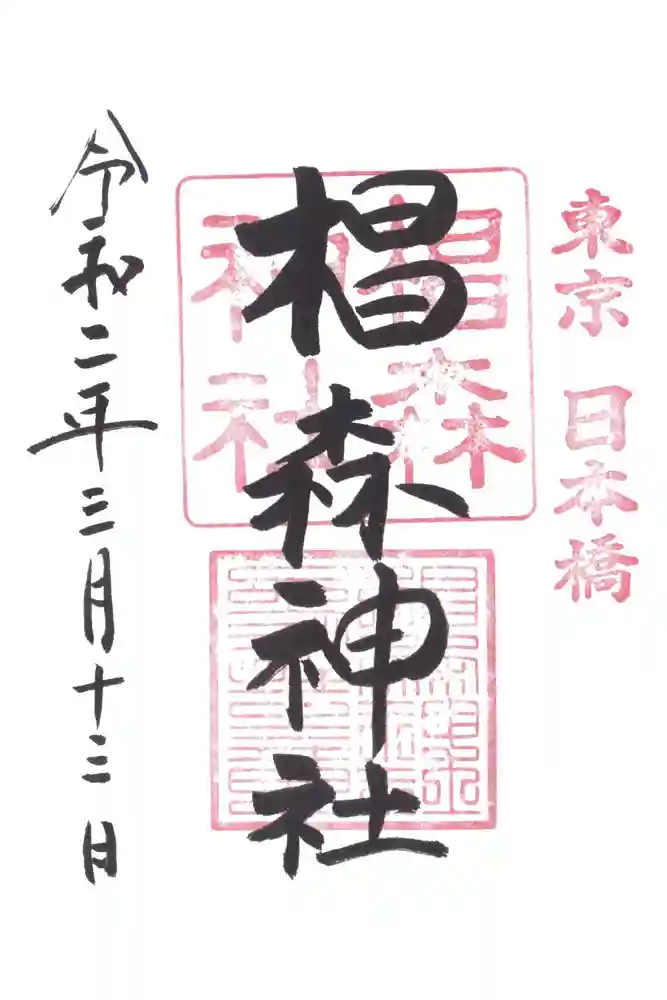 東京 日本橋
椙森神社
椙森
神社
令和二年三月十三日